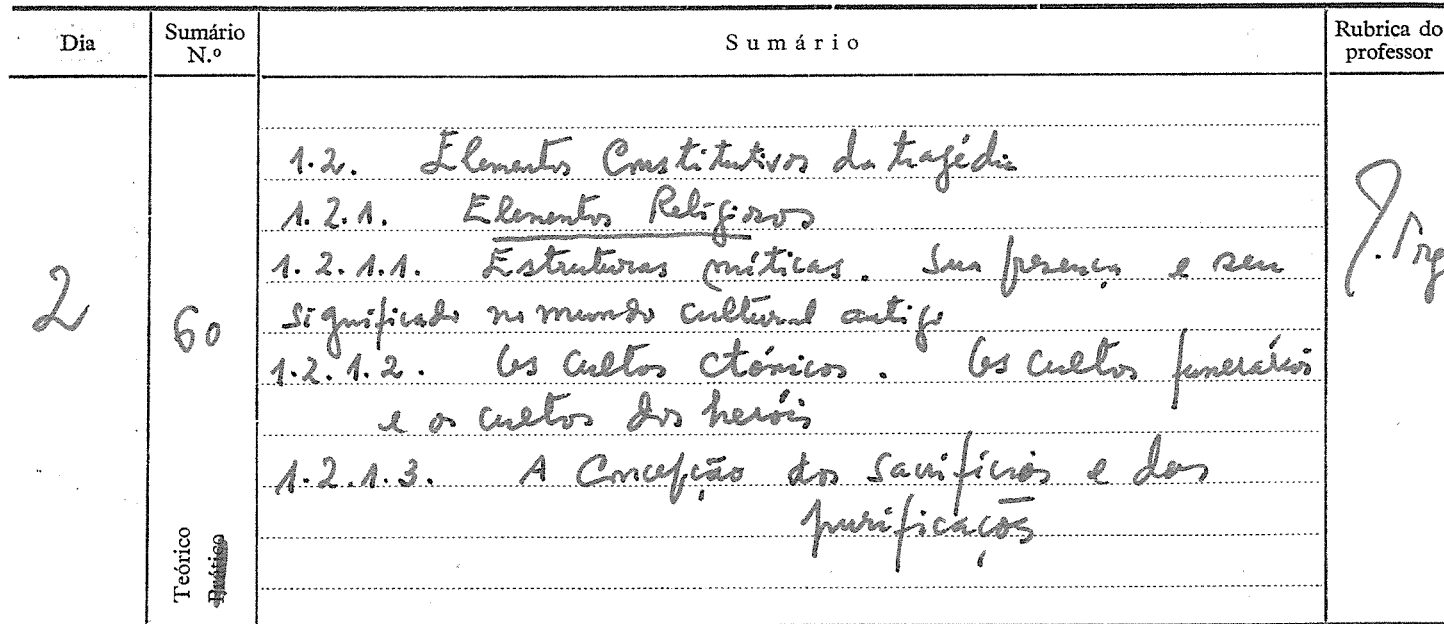 Dia
Sumário N.º
Sumário
Rubrica do professor
1.2. Elementos Constitutivos da tragédia
1.2.1. Elementos Religiosos
1.2.1.1. Estruturas míticas. Sua presença e seu
significado no mundo cultural antigo
1.2.1.2. Os cultos ctónicos. Os cultos funerários
e os cultos dos heróis
1.2.1.3. A Concepção dos sacrifícios e das
purificações
2
60
Teórico
Prático